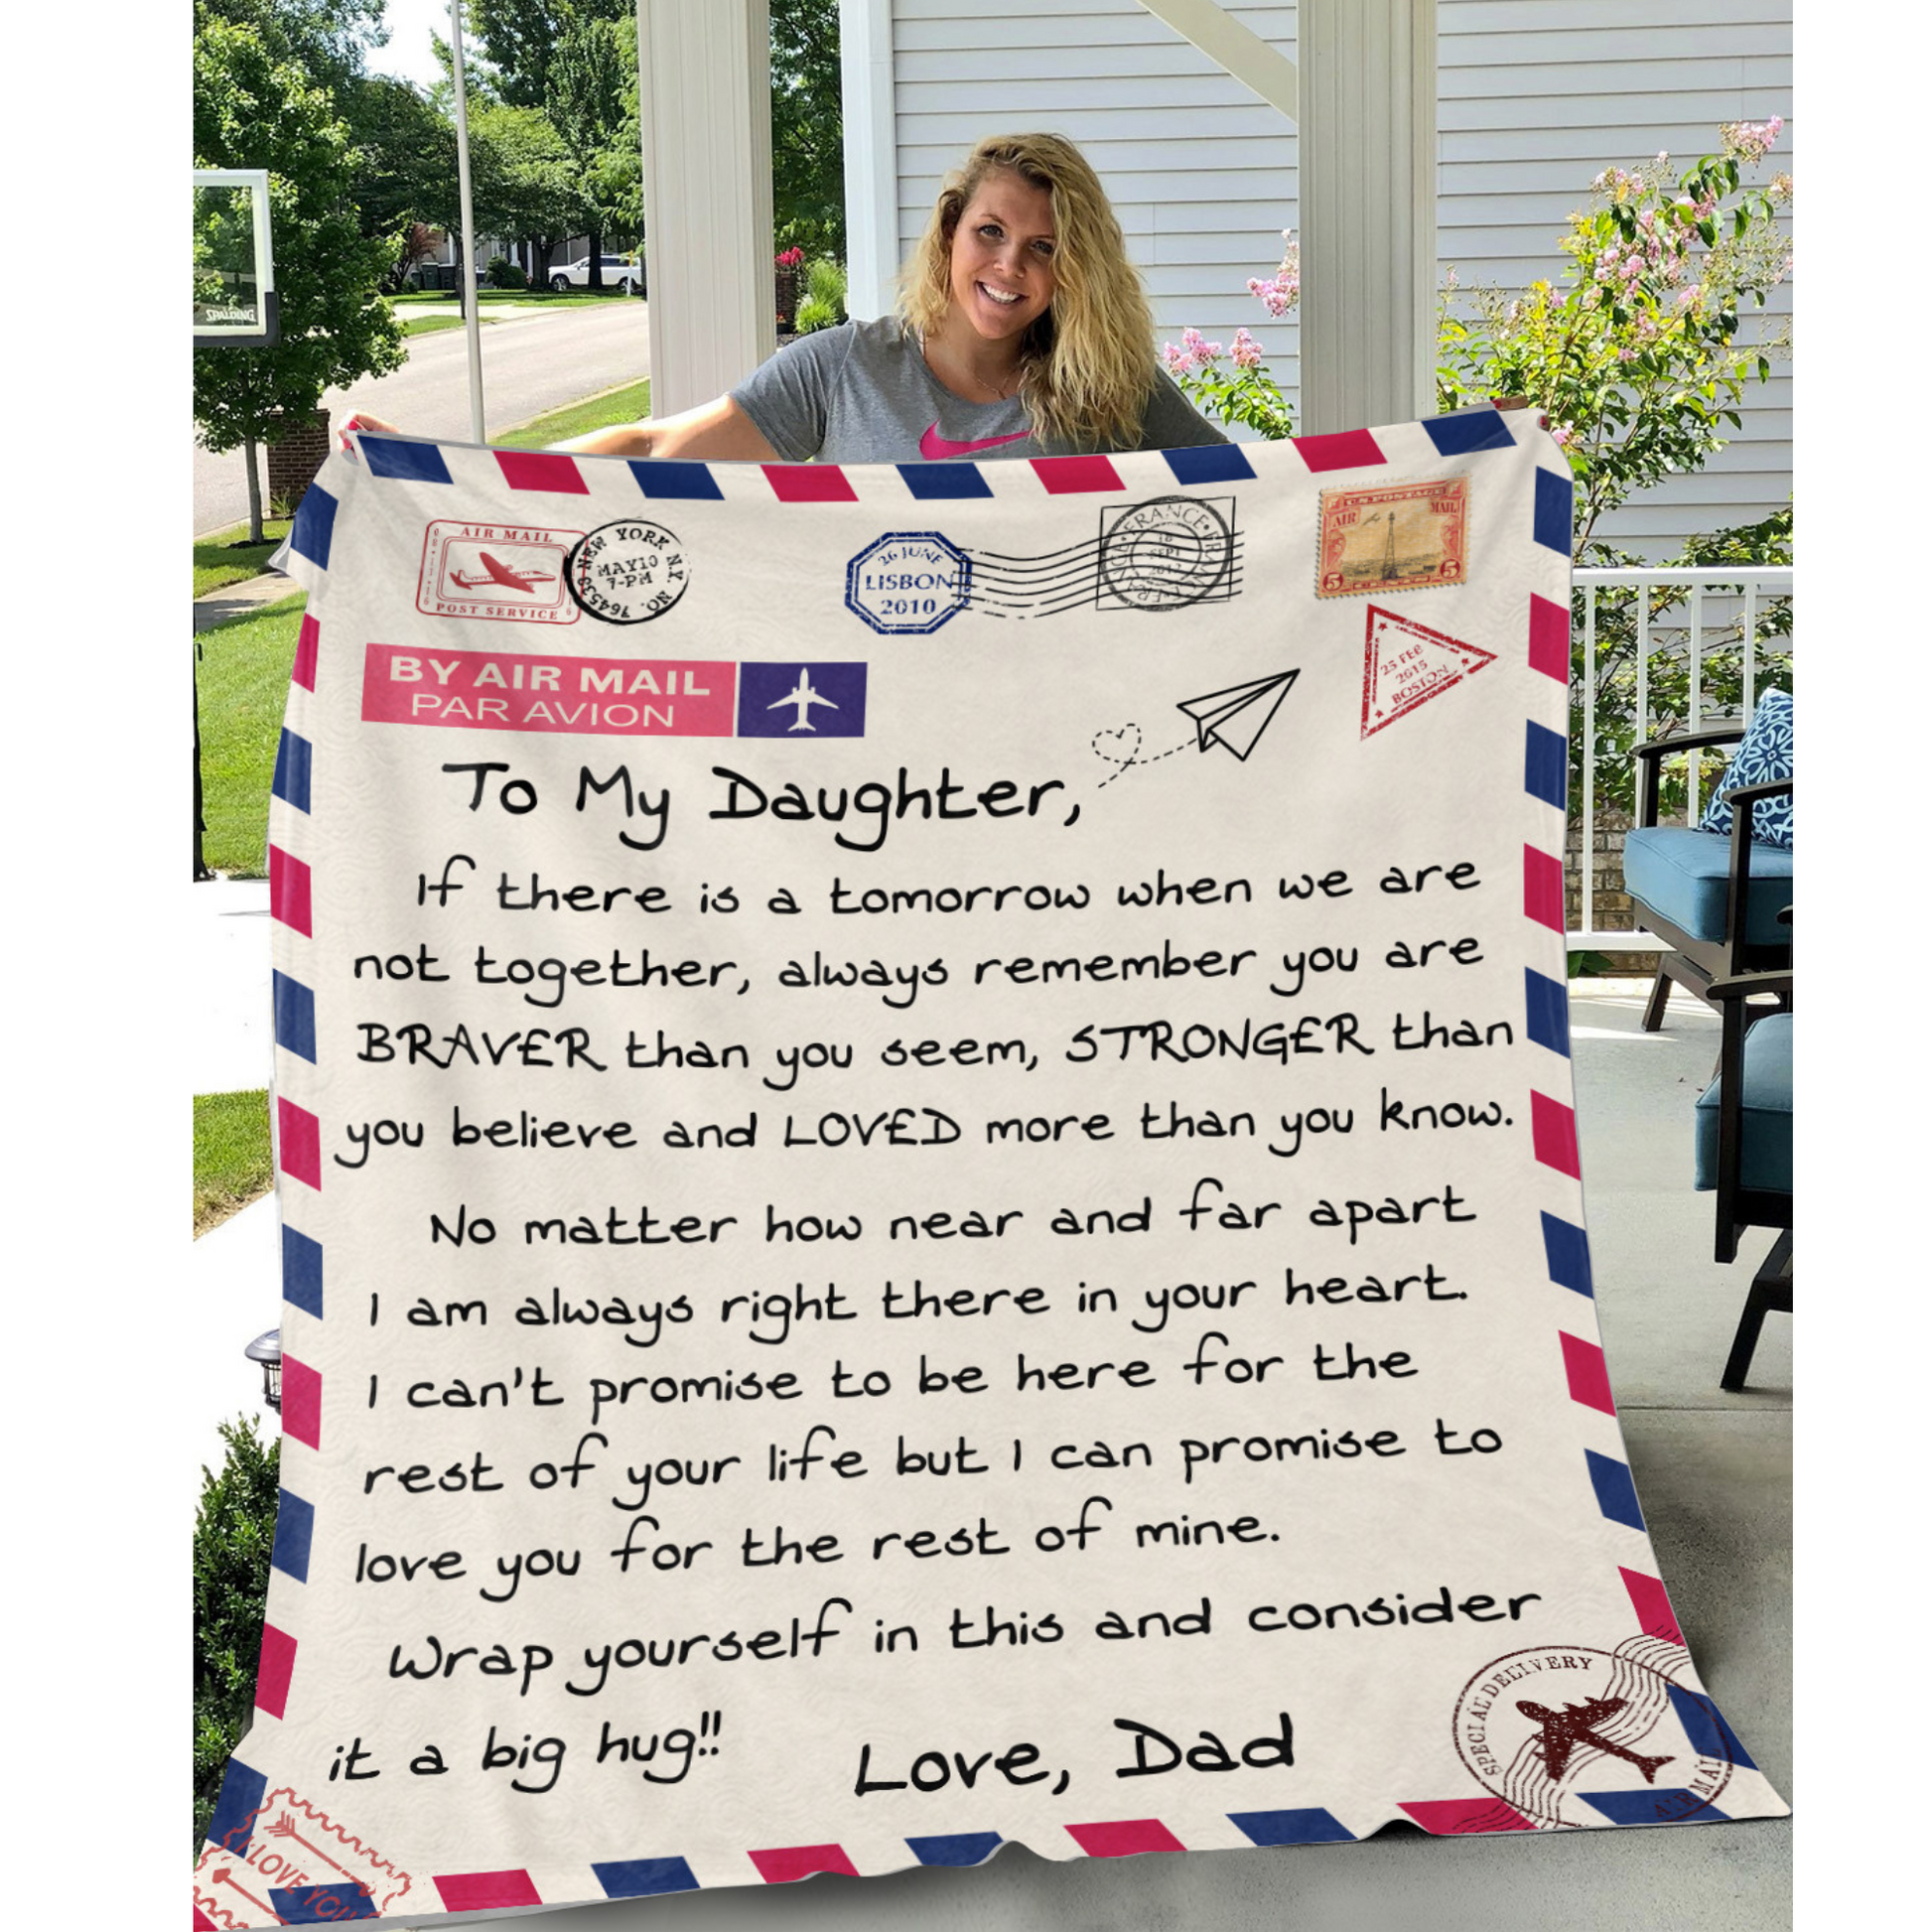 SPALDING
AIR MAIL
POST SERVICE
NEW YORK N.Y.
MAY10
7-PM
NO. 764533
26 JUNE
LISBON
2010
FRANCE
18
SEPT
2012
U.S. POSTAGE
AIR MAIL
5 CENTS 5
25 FEB
2615
BOSTON
BY AIR MAIL
PAR AVION
To My Daughter,
If there is a tomorrow when we are
not together, always remember you are
BRAVER than you seem, STRONGER than
you believe and LOVED more than you know.
No matter how near and far apart
I am always right there in your heart.
I can't promise to be here for the
rest of your life but I can promise to
love you for the rest of mine.
Wrap yourself in this and consider
it a big hug!!
Love, Dad
SPECIAL DELIVERY
AIR MAIL
I LOVE YOU